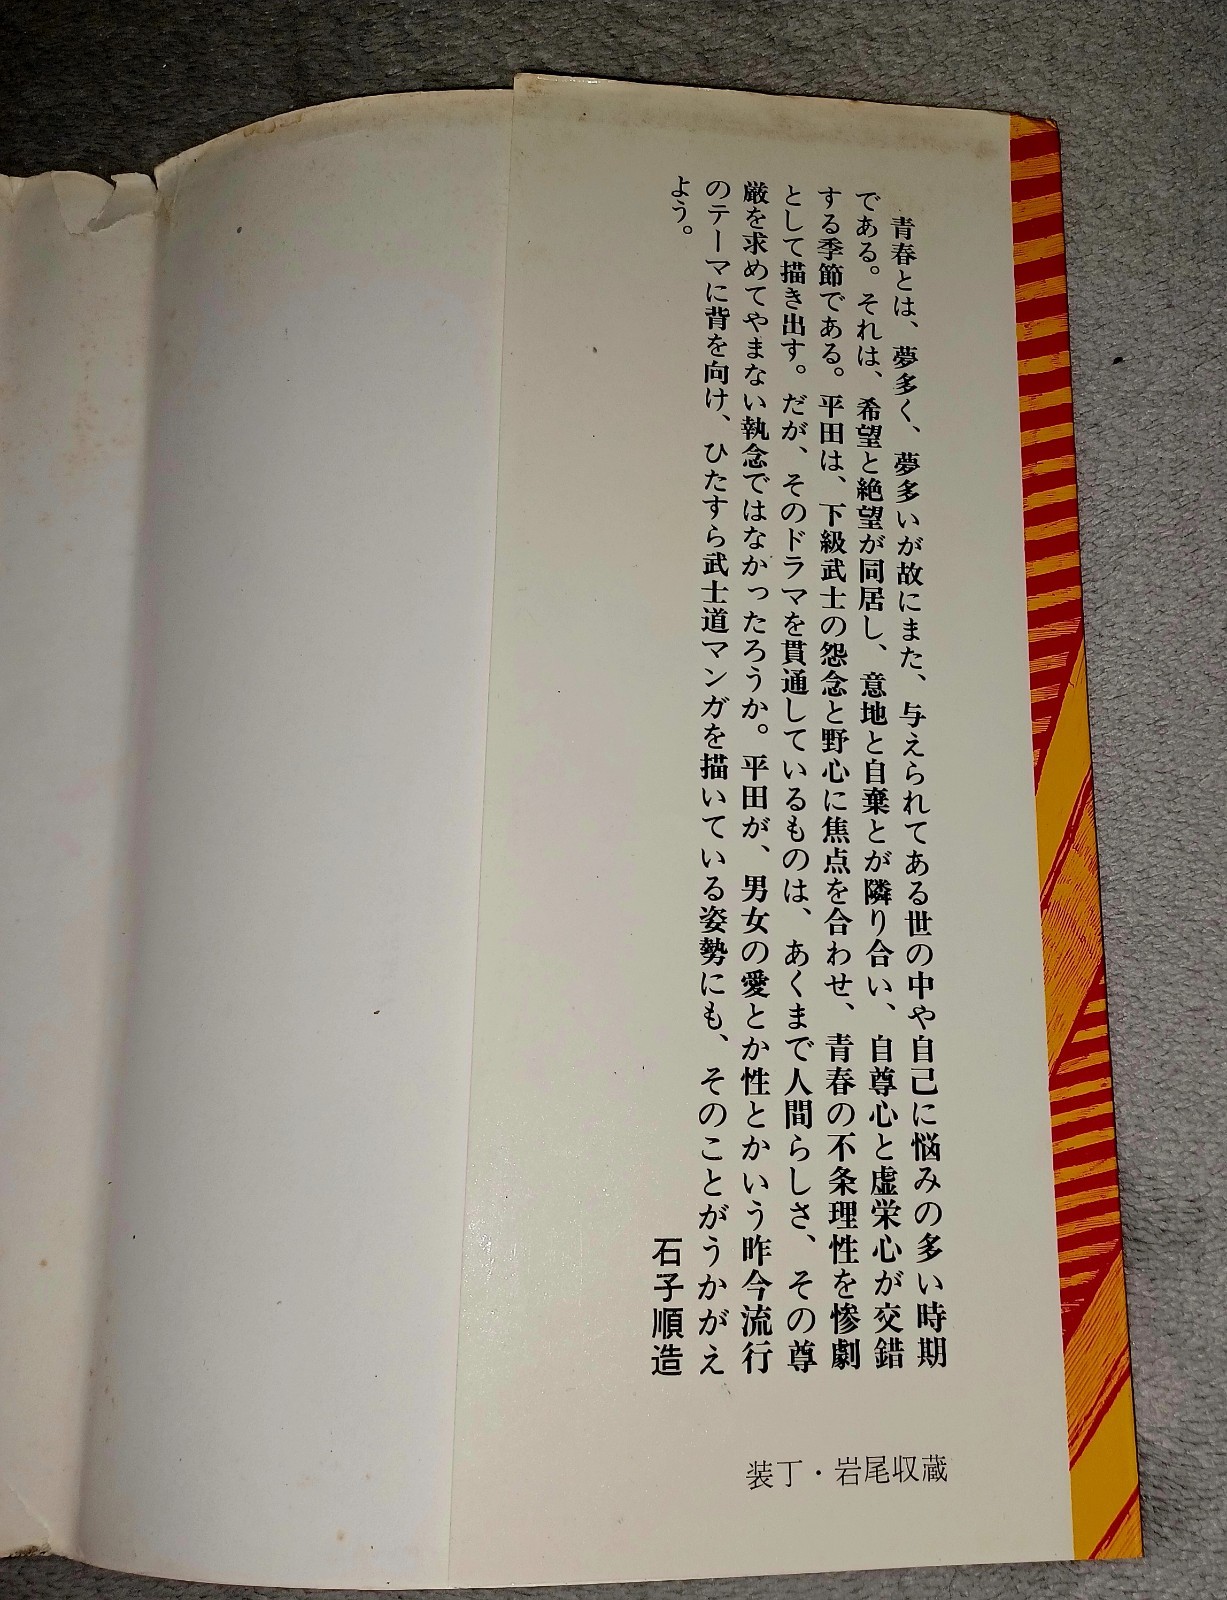 青春とは、夢多く、夢多いが故にまた、与えられてある世の中や自己に悩みの多い時期
である。それは、希望と絶望が同居し、意地と自棄とが隣り合い、自尊心と虚栄心が交錯
する季節である。平田は、下級武士の怨念と野心に焦点を合わせ、青春の不条理性を惨劇
として描き出す。だが、そのドラマを貫通しているものは、あくまで人間らしさ、その尊
厳を求めてやまない執念ではなかったろうか。平田が、男女の愛とか性とかいう昨今流行
のテーマに背を向け、ひたすら武士道マンガを描いている姿勢にも、そのことがうかがえ
よう。
石子順造
装丁・岩尾収蔵